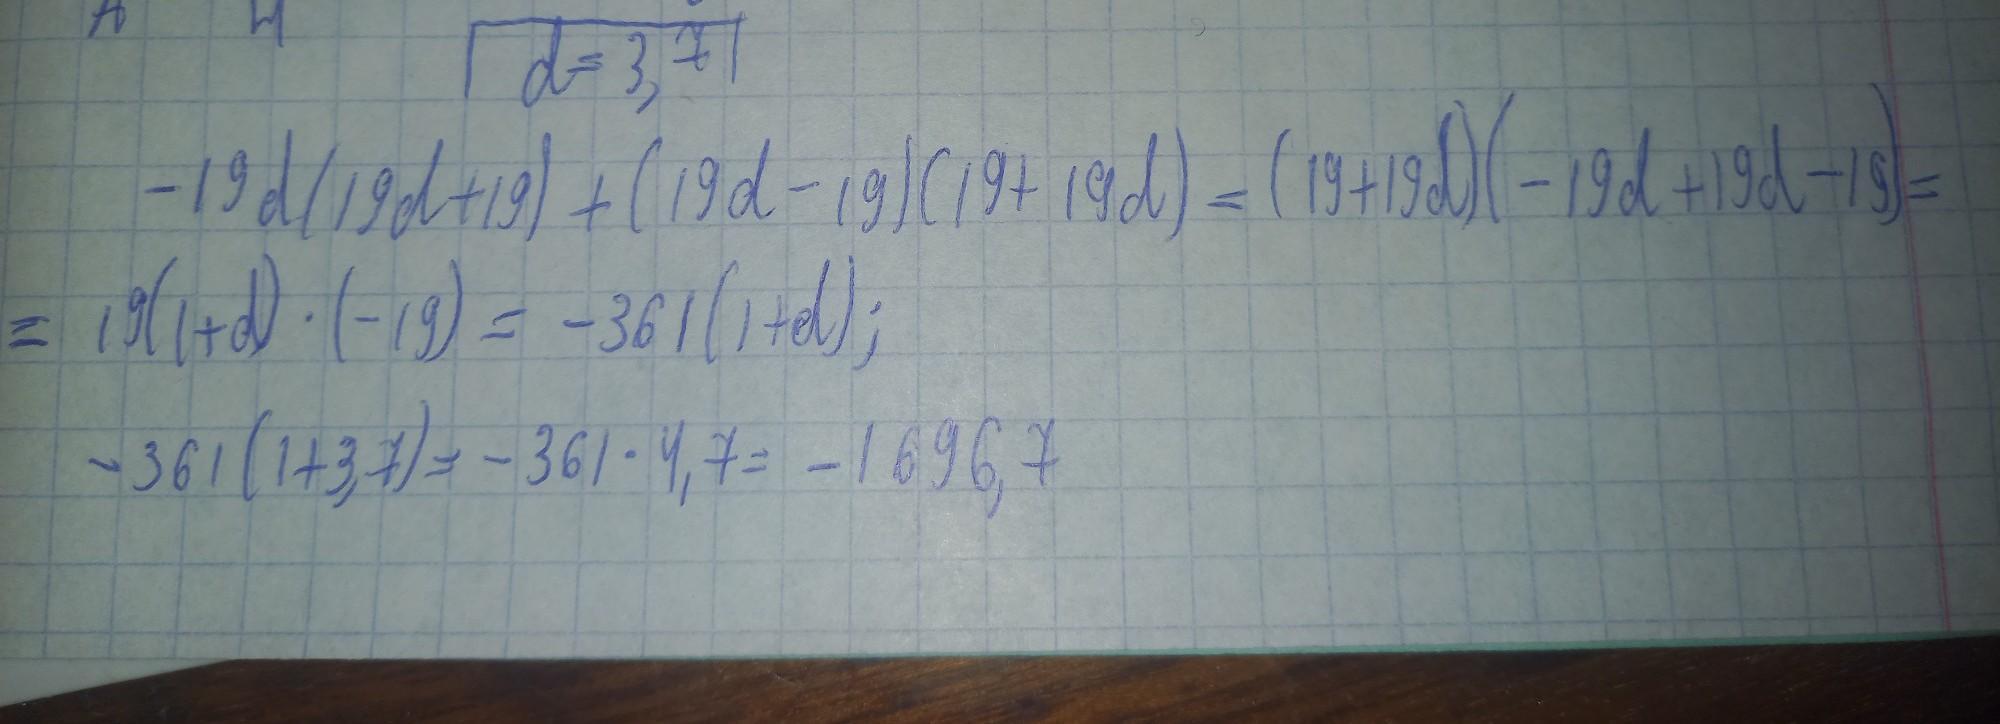 d = 3,7
-19d(19d+19)+(19d-19)(19+19d)=(19+19d)(-19d+19d-19)=
= 19(1+d)·(-19) = -361(1+d);
-361(1+3,7)= -361·4,7= -1696,7